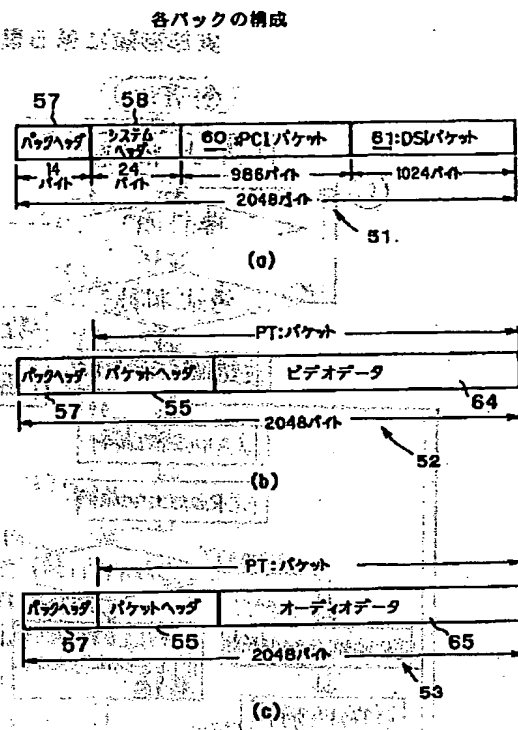 各パックの構成
57
58
パックヘッダ
システム
ヘッダ
60:PCIパケット
61:DSIパケット
14
バイト
24
バイト
986バイト
1024バイト
2048バイト
51.
(a)
PT:パケット
パックヘッダ
パケットヘッダ
ビデオデータ
57
55
64
2048バイト
52
(b)
PT:パケット
パックヘッダ
パケットヘッダ
オーディオデータ
57
55
65
2048バイト
53
(c)